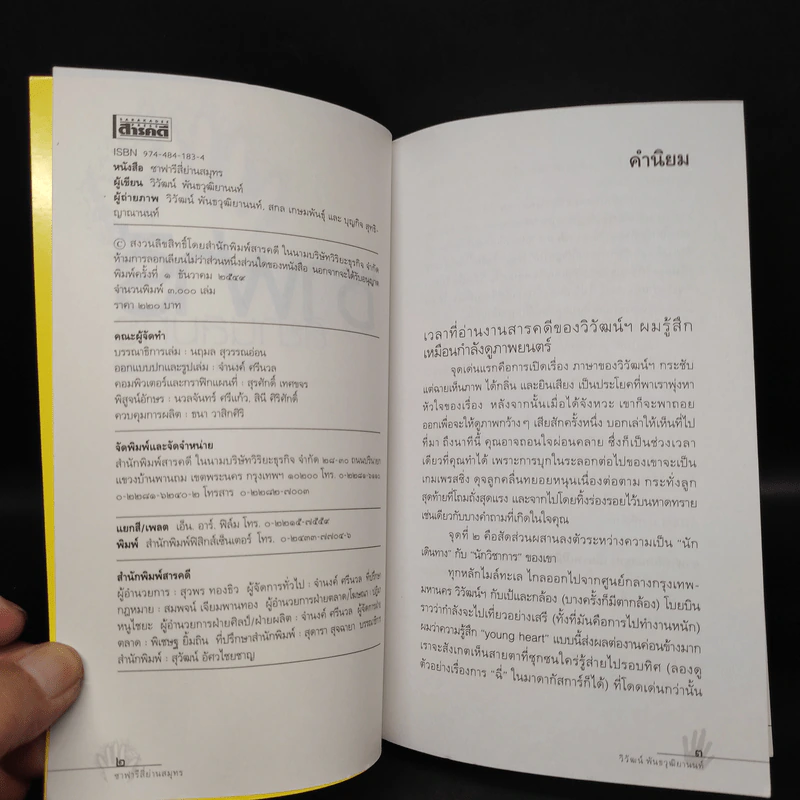 สารคดี
ISBN 974-484-183-4
หนังสือ ซาฟารีสี่ย่านสมุทร
ผู้เขียน วิวัฒน์ พันธวุฒิยานนท์
ผู้ถ่ายภาพ วิวัฒน์ พันธวุฒิยานนท์, สกล เกษมพันธุ์ และ บุญกิจ สุทธิ-
ญาณานนท์
© สงวนลิขสิทธิ์โดยสำนักพิมพ์สารคดี ในนามบริษัทวิริยะธุรกิจ จำกัด
ห้ามการลอกเลียนไม่ว่าส่วนหนึ่งส่วนใดของหนังสือ นอกจากจะได้รับอนุญาต
พิมพ์ครั้งที่ ๑ ธันวาคม ๒๕๔๙
จำนวนพิมพ์ ๓,๐๐๐ เล่ม
ราคา ๒๒๐ บาท
คณะผู้จัดทำ
บรรณาธิการเล่ม : นฤมล สุวรรณอ่อน
ออกแบบปกและรูปเล่ม : จำนงค์ ศรีนวล
คอมพิวเตอร์และกราฟิกแผนที่ : สุรศักดิ์ เทศขจร
พิสูจน์อักษร : นวลจันทร์ ศรีแก้ว, สินี ศิริศักดิ์
ควบคุมการผลิต : ธนา วาสิกศิริ
จัดพิมพ์และจัดจำหน่าย
สำนักพิมพ์สารคดี ในนามบริษัทวิริยะธุรกิจ จำกัด ๒๘-๓๐ ถนนปรินายก
แขวงบ้านพานถม เขตพระนคร กรุงเทพฯ ๑๐๒๐๐ โทร.
๐-๒๒๘๑-๖๒๔๐-๒ โทรสาร ๐-๒๒๘๒-๗๐๐๓
แยกสี/เพลต เอ็น. อาร์. ฟิล์ม โทร. ๐-๒๒๑๕-๗๕๕๙
พิมพ์ สำนักพิมพ์ฟิสิกส์เซ็นเตอร์ โทร. ๐-๒๔๓๓-๗๗๐๔-๖
สำนักพิมพ์สารคดี
ผู้อำนวยการ : สุวพร ทองธิว ผู้จัดการทั่วไป : จำนงค์ ศรีนวล ที่ปรึกษา
กฎหมาย : สมพจน์ เจียมพานทอง ผู้อำนวยการฝ่ายตลาด/โฆษณา :
หนูไชยะ ผู้อำนวยการฝ่ายศิลป์/ฝ่ายผลิต : จำนงค์ ศรีนวล ผู้จัดการฝ่าย
ตลาด : พิเชษฐ ยิ้มถิน ที่ปรึกษาสำนักพิมพ์ : สุดารา สุจฉายา บรรณาธิการ
สำนักพิมพ์ : สุวัฒน์ อัศวไชยชาญ
๒
ซาฟารีสี่ย่านสมุทร
คำนิยม
เวลาที่อ่านงานสารคดีของวิวัฒน์ฯ ผมรู้สึก
เหมือนกำลังดูภาพยนตร์
จุดเด่นแรกคือการเปิดเรื่อง ภาษาของวิวัฒน์ฯ กระชับ
แต่ฉายเห็นภาพ ได้กลิ่น และยินเสียง เป็นประโยคที่พาเราพุ่งหา
หัวใจของเรื่อง หลังจากนั้นเมื่อได้จังหวะ เขาก็จะพาถอย
ออกเพื่อจะให้ดูภาพกว้างๆ เสียสักครั้งหนึ่ง บอกเล่าให้เห็นที่ไป
ที่มา ถึงนาทีนี้ คุณอาจถอนใจผ่อนคลาย ซึ่งก็เป็นช่วงเวลา
เดียวที่คุณทำได้ เพราะการบุกในระลอกต่อไปของเขาจะเป็น
เกมเพรสซิ่ง ดุจลูกคลื่นทยอยหนุนเนื่องต่อตาม กระทั่งลูก
สุดท้ายที่โถมถั่งสุดแรง และจากไปโดยทิ้งร่องรอยไว้บนหาดทราย
เช่นเดียวกับบางคำถามที่เกิดในใจคุณ
จุดที่ ๒ คือสัดส่วนผสานลงตัวระหว่างความเป็น “นัก
เดินทาง” กับ “นักวิชาการ” ของเขา
ทุกหลักไมล์ทะเล ไกลออกไปจากศูนย์กลางกรุงเทพ-
มหานคร วิวัฒน์ฯ กับเป้และกล้อง (บางครั้งก็มีตากล้อง) โบยบิน
ราวว่ากำลังจะไปเที่ยวอย่างเสรี (ทั้งที่มันคือการไปทำงานหนัก)
ผมว่าความรู้สึก “young heart” แบบนี้ส่งผลต่องานค่อนข้างมาก
เราจะสังเกตเห็นสายตาที่ซุกซนใคร่รู้ส่ายไปรอบทิศ (ลองดู
ตัวอย่างเรื่องการ “ฉี่” ในมาดากัสการ์ก็ได้) ที่โดดเด่นกว่านั้น
๓
วิวัฒน์ พันธวุฒิยานนท์